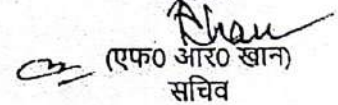 (एफ० आर० खान)
सचिव